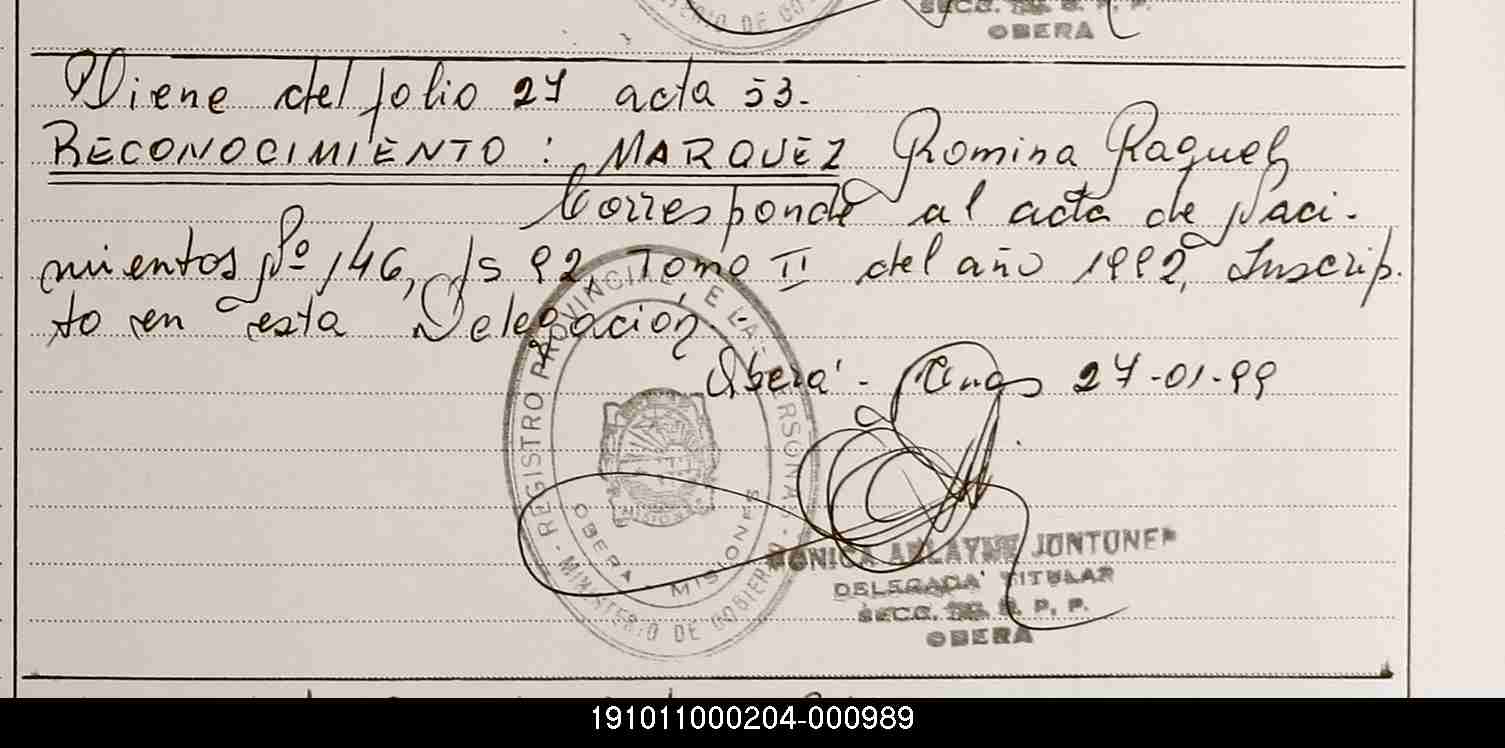 SECC. P. P.
OBERA
Viene del folio 27 acta 53.-
RECONOCIMIENTO: MARQUEZ Romina Raquel,
Corresponde al acta de Naci-
mientos Nº 146, fs 92, Tomo II del año 1992, Inscrip-
to en esta Delegación.-
Oberá - Mnes 27-01-99
REGISTRO PROVINCIAL DE LAS PERSONAS - MINISTERIO DE GOBIERNO
OBERA MISIONES
MONICA JUNTUNEN
DELEGADA TITULAR
SECC. R. P. P.
OBERA
191011000204-000989